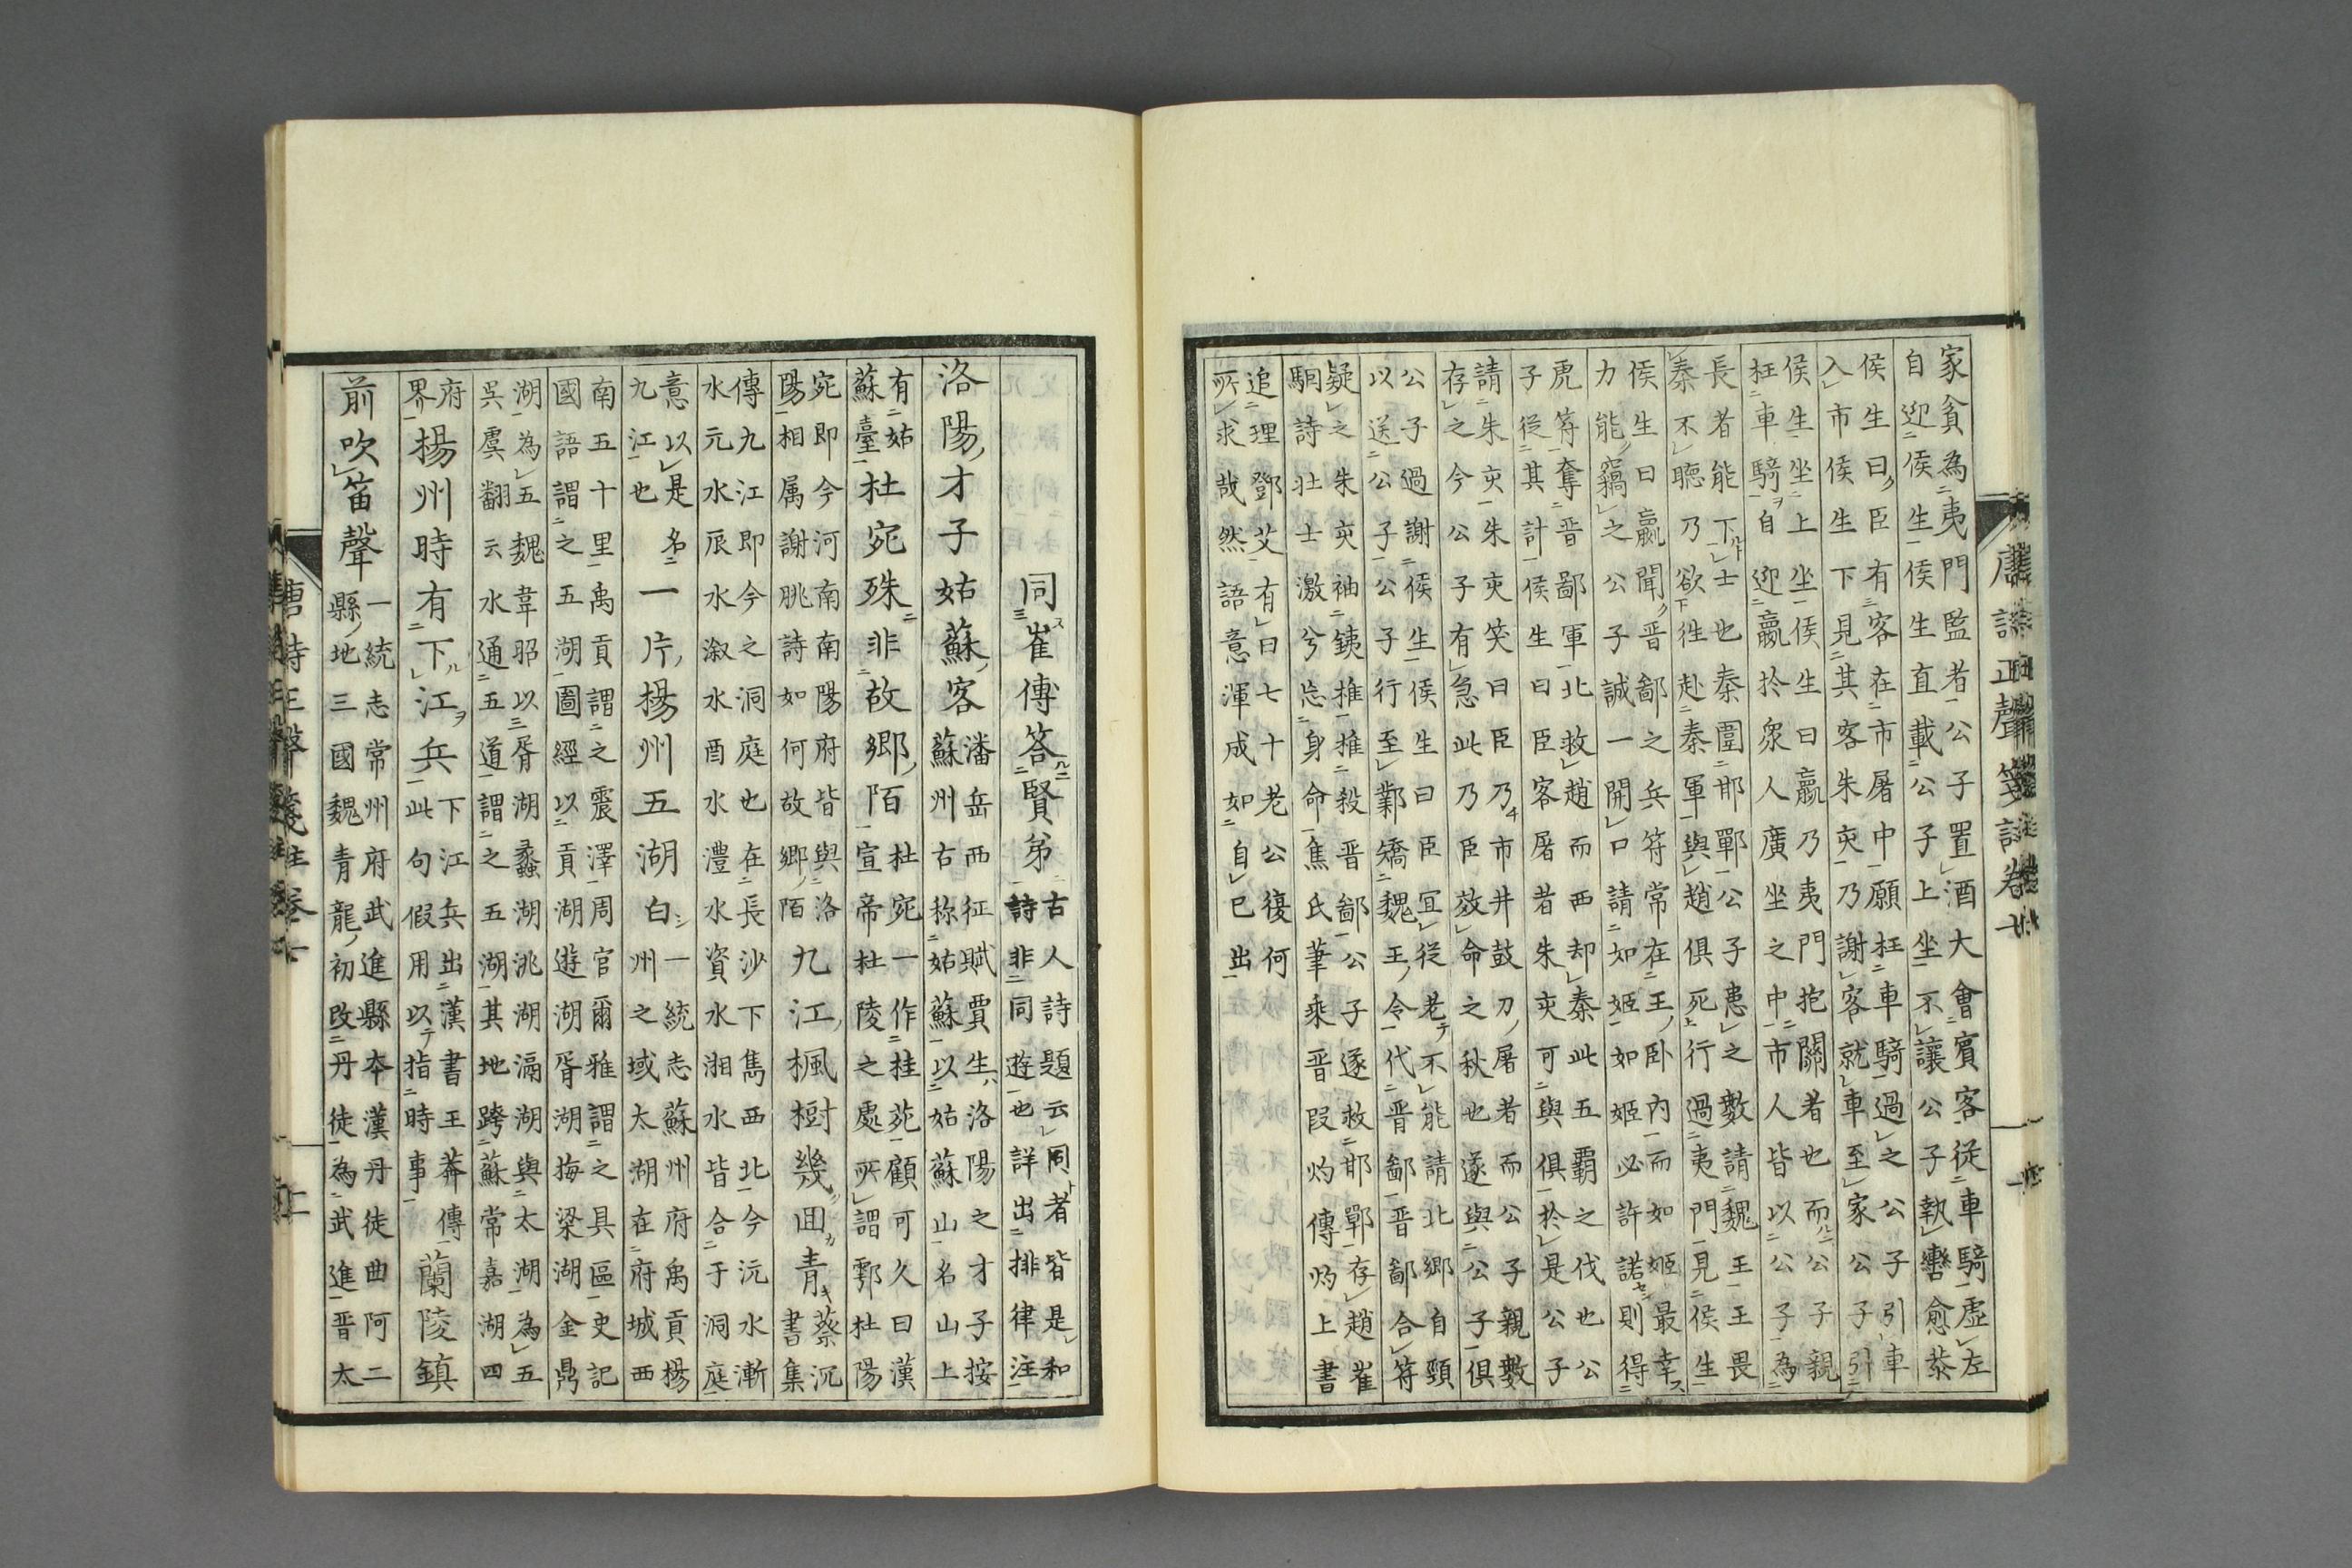 唐詩正聲箋註卷七
家貧為夷門監者公子置酒大會賓客従車騎虚左
自迎侯生侯生直載公子上坐不讓公子執轡愈恭
侯生曰臣有客在市屠中願枉車騎過之公子引車
入市侯生下見其客朱亥乃謝客就車至家公子引
侯生坐上坐侯生曰嬴乃夷門抱關者也而公子親
枉車騎自迎嬴於衆人廣坐之中市人皆以公子為
長者能下士也秦圍邯鄲公子患之數請魏王王畏
秦不聴乃欲徃赴秦軍與趙俱死行過夷門見侯生
侯生曰嬴聞晋鄙之兵符常在王卧内而如姬最幸
力能竊之公子誠一開口請如姬如姬必許諾則得
虎符奪晋鄙軍北救趙而西却秦此五霸之伐也公
子従其計侯生曰臣客屠者朱亥可與俱於是公子
請朱亥朱亥笑曰臣乃市井鼓刀屠者而公子親數
存之今公子有急此乃臣效命之秋也遂與公子俱
公子過謝侯生侯生曰臣宜従老不能請北郷自頸
以送公子公子行至鄴矯魏王令代晋鄙晋鄙合符
疑之朱亥袖銕推推殺晋鄙公子遂救邯鄲存趙崔
駰詩壮士激兮忘身命焦氏筆乗晋叚灼傳灼上書
追理鄧艾有曰七十老公復何
所求哉然語意渾成如自己出
同崔傳答賢弟
古人詩題云同者皆是和
詩非同遊也詳出排律注
洛陽才子姑蘇客
潘岳西征賦賈生洛陽之才子按
蘇州古称姑蘇以姑蘇山名山上
有姑
蘇臺
杜宛殊非故郷陌
杜宛一作桂苑顧可久曰漢
宣帝杜陵之處所謂鄠杜陽
宛即今河南南陽府皆與洛
陽相属謝朓詩如何故郷陌
九江楓樹幾囬青
蔡沉
書集
傳九江即今之洞庭也在長沙下雋西北今沅水漸
水元水辰水溆水酉水澧水資水湘水皆合于洞庭
意以是名
九江也
一片揚州五湖白
一統志蘇州府禹貢楊
州之域太湖在府城西
南五十里禹貢謂之震澤周官爾雅謂之具區史記
國語謂之五湖圖經以貢湖遊湖胥湖梅梁湖金鼎
湖為五魏韋昭以胥湖蠡湖洮湖滆湖與太湖為五
呉虞翻云水通五道謂之五湖其地跨蘇常嘉湖四
府
界
揚州時有下江兵
下江兵出漢書王莽傳
此句假用以指時事
蘭陵鎮
前吹笛聲
一統志常州府武進縣本漢丹徒曲阿二
縣地三國魏青龍初改丹徒為武進晋太